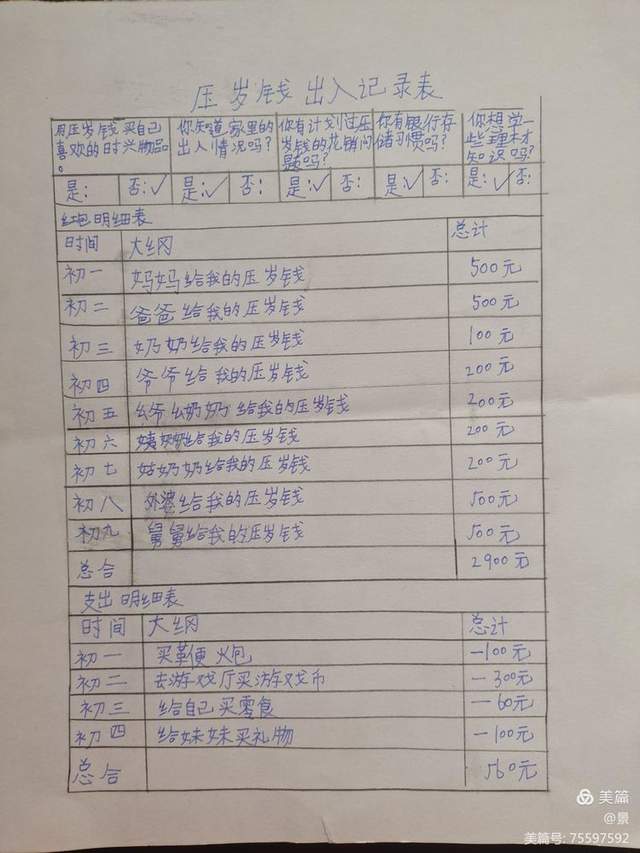 压岁钱出入记录表
用压岁钱买自己喜欢的时兴物品。 你知道家里的出入情况吗? 你有计划过压岁钱的花销问题吗? 你有银行存储习惯吗? 你想学一些理财知识吗?
是: 否:✓ 是:✓ 否: 是:✓ 否: 是:✓ 否: 是:✓ 否:
红包明细表
时间 大纲 总计
初一 妈妈给我的压岁钱 500元
初二 爸爸给我的压岁钱 500元
初三 奶奶给我的压岁钱 100元
初四 爷爷给我的压岁钱 200元
初五 幺爷幺奶奶给我的压岁钱 200元
初六 姨奶奶给我的压岁钱 200元
初七 姑奶奶给我的压岁钱 200元
初八 外婆给我的压岁钱 500元
初九 舅舅给我的压岁钱 500元
总合 2900元
支出明细表
时间 大纲 总计
初一 买革便火包 -100元
初二 去游戏厅买游戏币 -300元
初三 给自己买零食 -60元
初四 给妹妹买礼物 -100元
总合 560元
美篇
@景
美篇号: 75597592